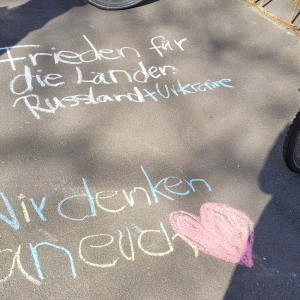 Frieden für
die Länder:
Russland+Uikraine
Wir denken
an euch